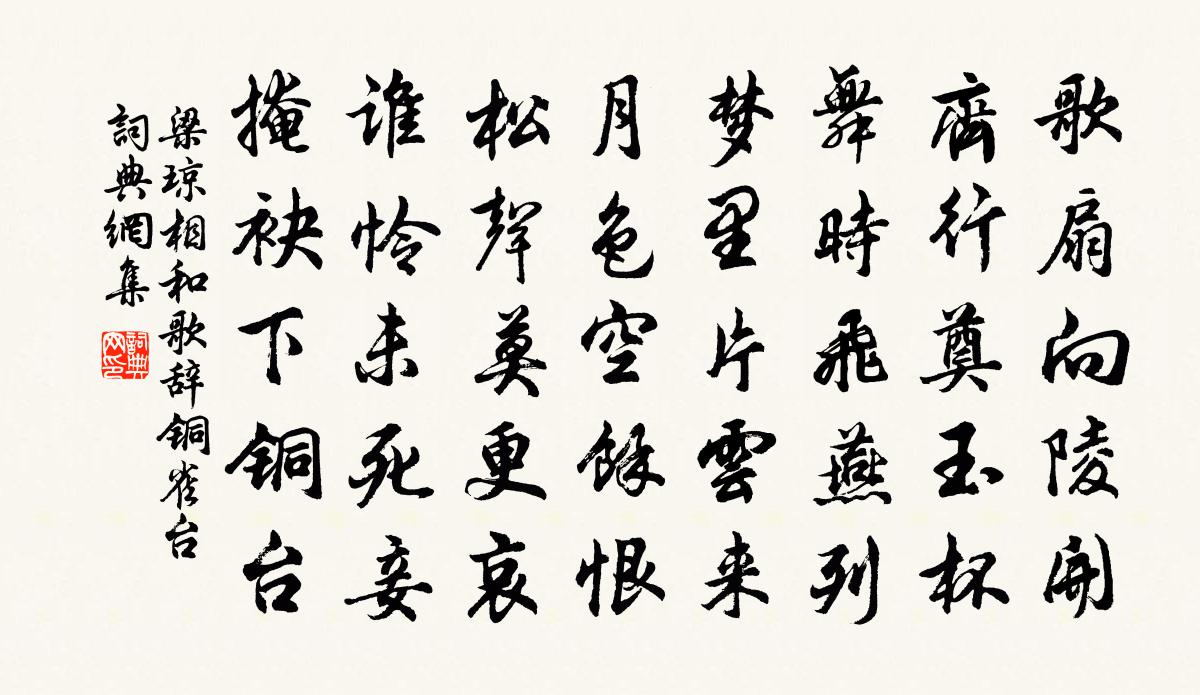 歌扇向陵開
齊行奠玉杯
舞時飛燕列
梦里片雲来
月色空餘恨
松聲莫更哀
谁怜未死妾
掩袂下铜台
梁琼相和歌辞铜雀台
詞典網集
詞典網印